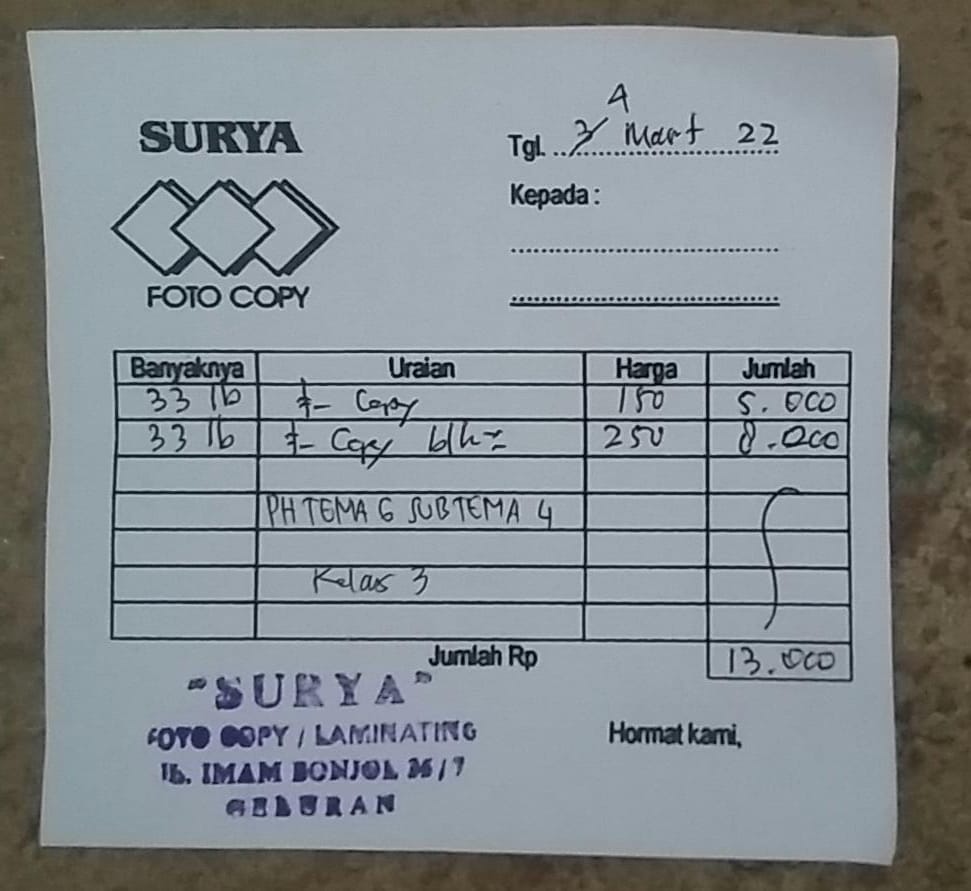 SURYA
FOTO COPY
Tgl. 3/4 Mart 22
Kepada :
Banyaknya Uraian Harga Jumlah
33 lb Copy 150 5.000
33 lb Copy 250 8.000
PH TEMA 6 SUBTEMA 4
Kelas 3
Jumlah Rp 13.000
"SURYA"
FOTO COPY / LAMINATING
IMAM BONJOL
GELURAN
Hormat kami,